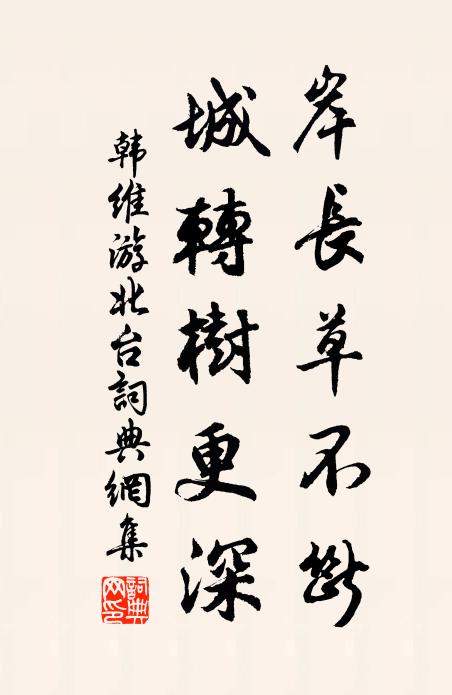 岸長草不斷
城轉樹更深
韩維游北台詞典網集
詞典网印